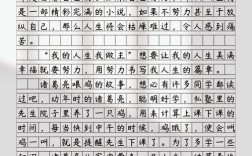 是一部精彩完满的小说，如果不努力甚至于放
纵自己，那么人生将会枯燥难过，令人感到痛
苦。
“我的人生我做主”想要让我的人生美满
幸福就要努力，用努力书写我的人生的篇章。
诸葛亮喂鸡的故事，想必有许多同学都读
过吧，幼年时的诸葛亮，聪明好学，私塾里的
先生院子里养了一只鸡，用来计算上课下课的
时间，每当快到中午的时候，鸡饿了，便会叫
鸣一叫，就是提醒先生下课了。为了多学一些